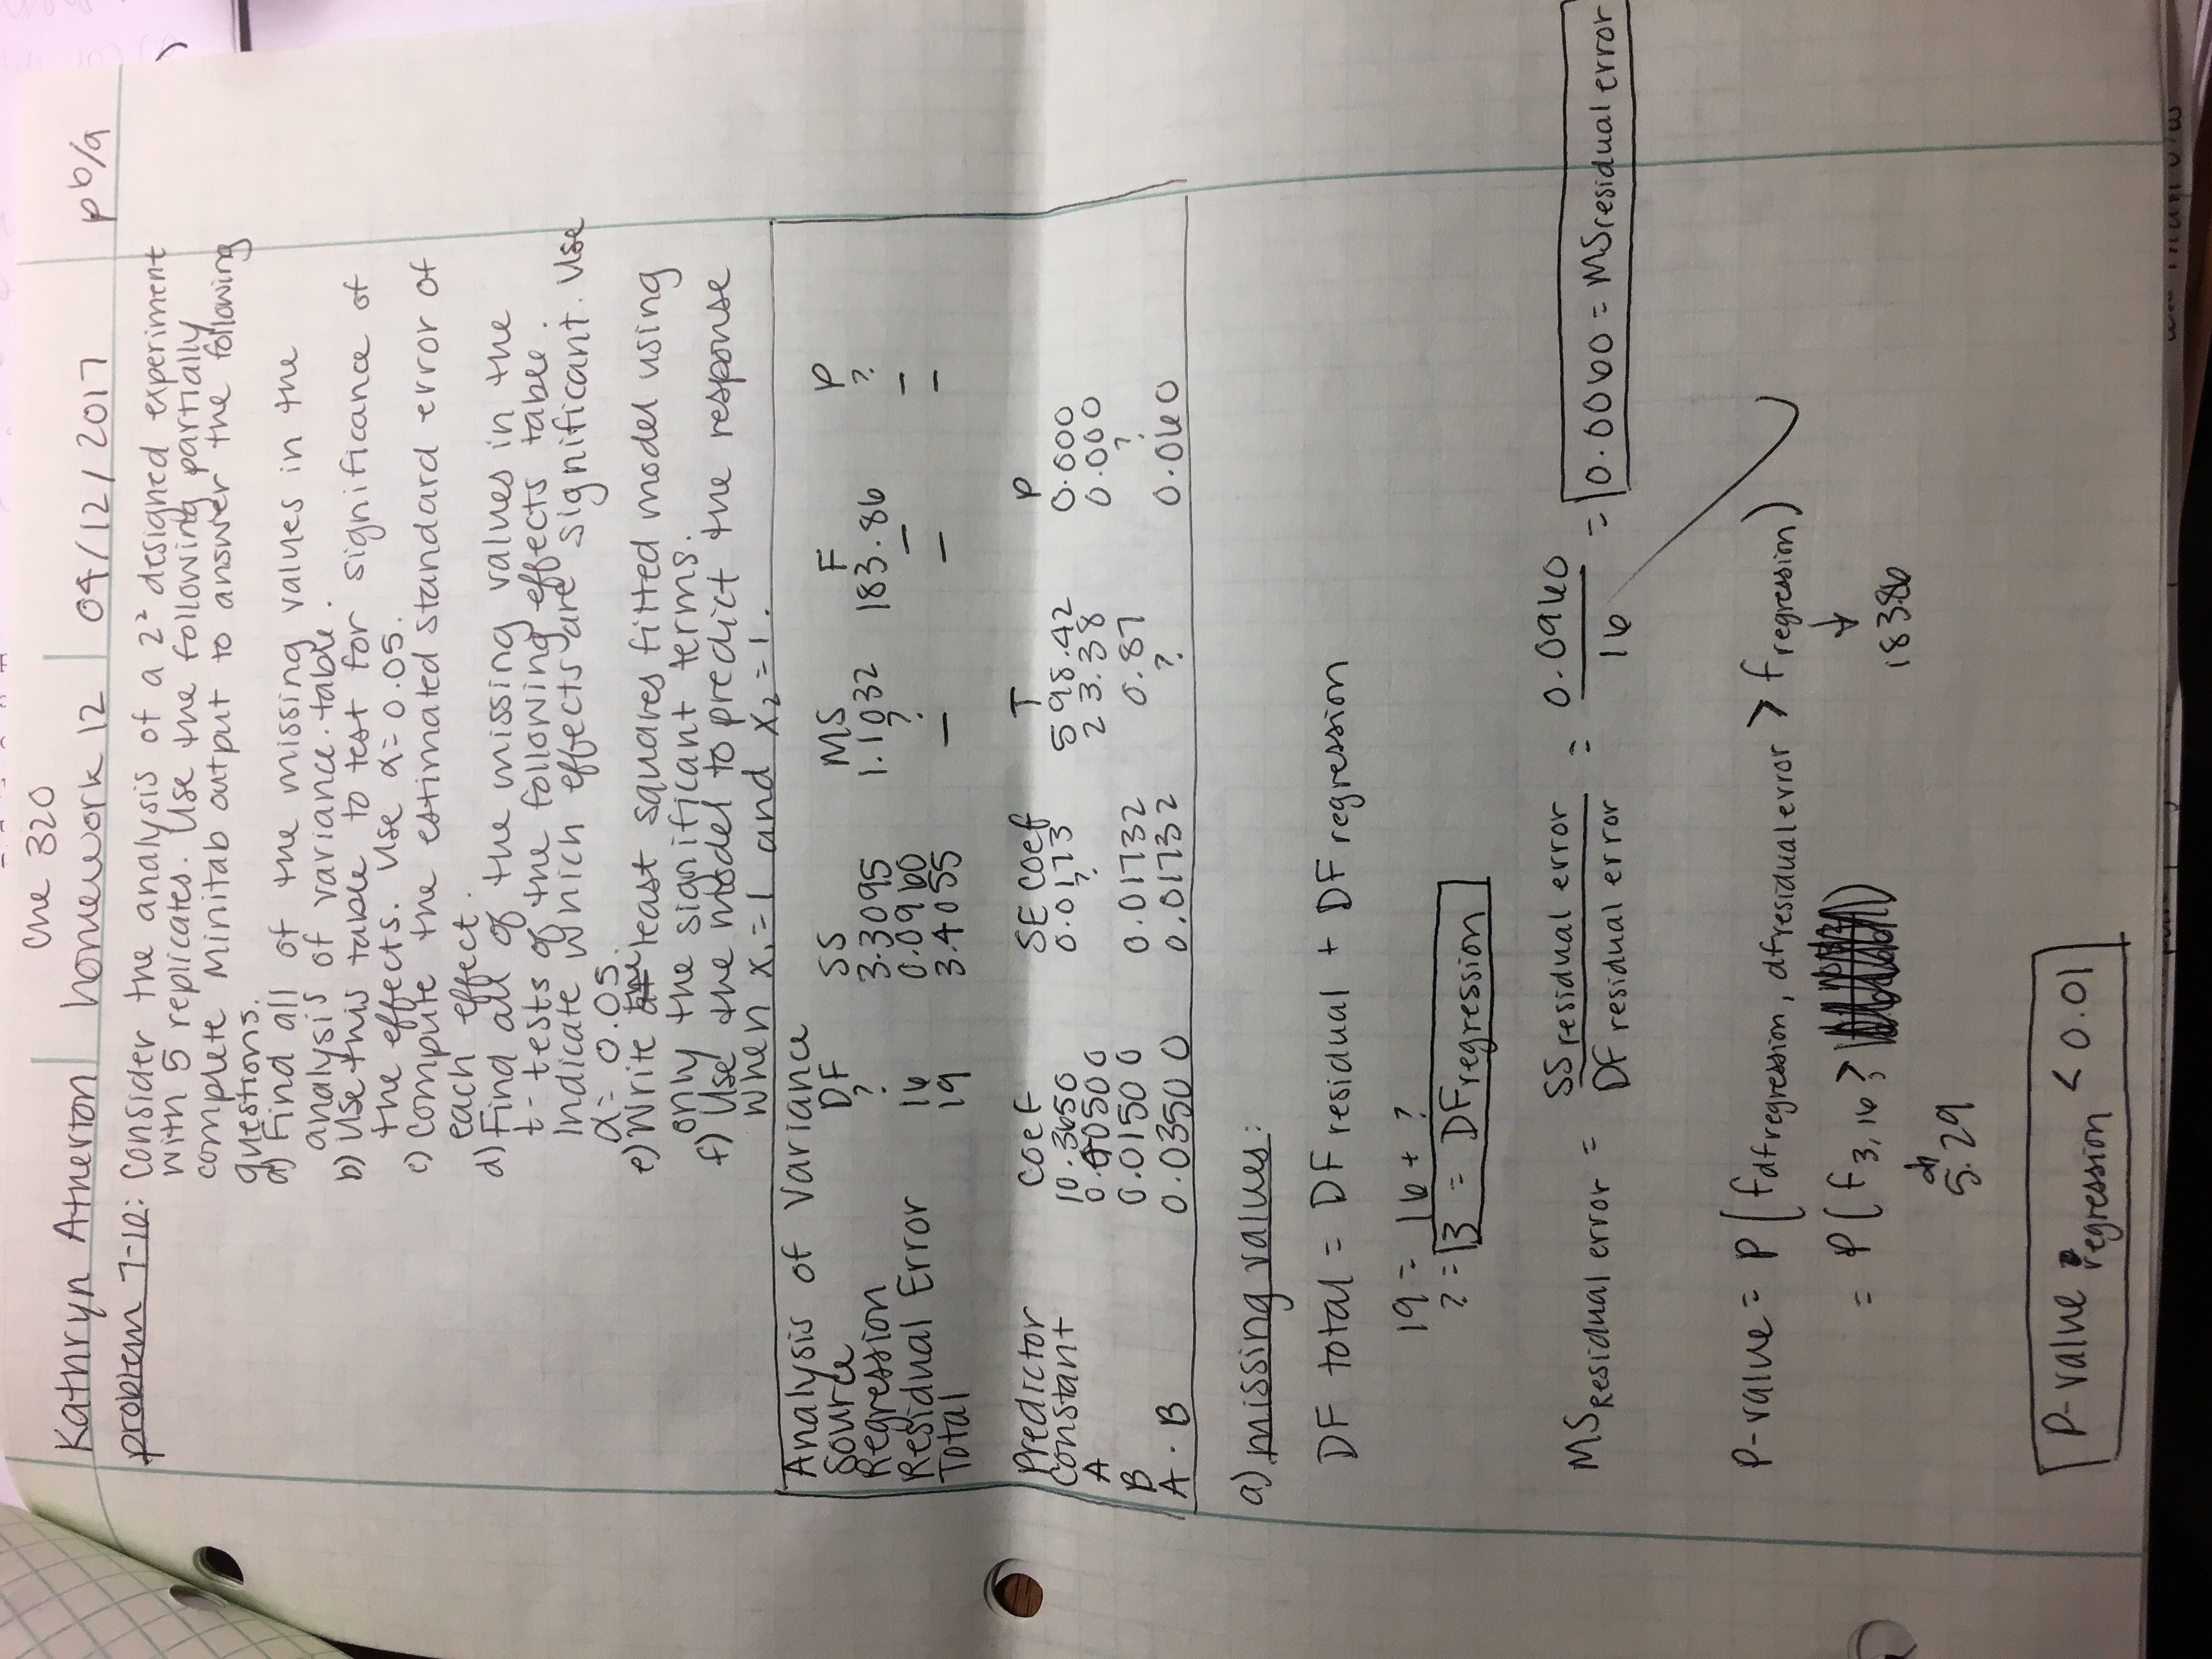 Che 320
Kathryn Atherton | homework 12 | 04/12/2017 | p6/9
problem 7-10: Consider the analysis of a 2² designed experiment
with 5 replicates. Use the following partially
complete Minitab output to answer the following
questions.
a) Find all of the missing values in the
analysis of variance table.
b) Use this table to test for significance of
the effects. Use α=0.05.
c) Compute the estimated standard error of
each effect.
d) Find all of the missing values in the
t-tests of the following effects table.
Indicate which effects are significant. Use
α= 0.05.
e) Write the least squares fitted model using
only the significant terms.
f) Use the model to predict the response
when x₁=1 and x₂=1.
Analysis of Variance
Source DF SS MS F P
Regression ? 3.3095 1.1032 183.86 ?
Residual Error 16 0.0960 ? – –
Total 19 3.4055 – – –
Predictor Coef SE Coef T P
Constant 10.3650 0.0173 598.42 0.000
A 0.40500 ? 23.38 0.000
B 0.01500 0.01732 0.87 ?
A · B 0.03500 0.01732 ? 0.060
a) missing values:
DF total = DF residual + DF regression
19 = 16 + ?
? = 3 = DF regression
MS Residual error = SS residual error / DF residual error = 0.0960 / 16 = 0.0060 = MS residual error
P-value = P(f df regression, df residual error > f regression)
= P(f 3,16 > ) ↓
183.86
5.29
P-value regression < 0.01